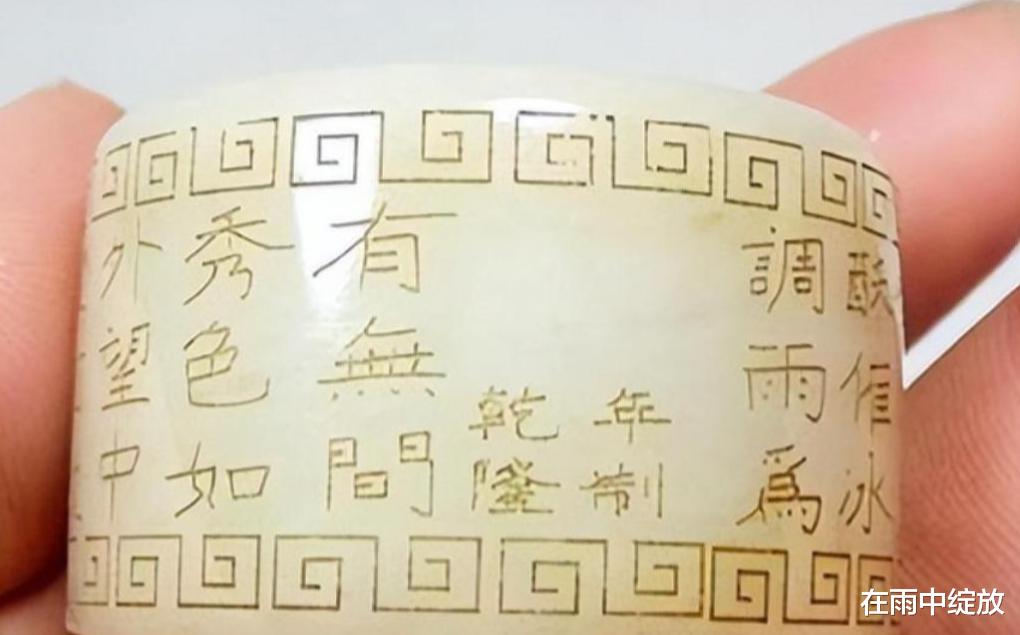 外望中
秀色如
有無間
乾隆
年制
調雨爲
酥冰
在雨中绽放